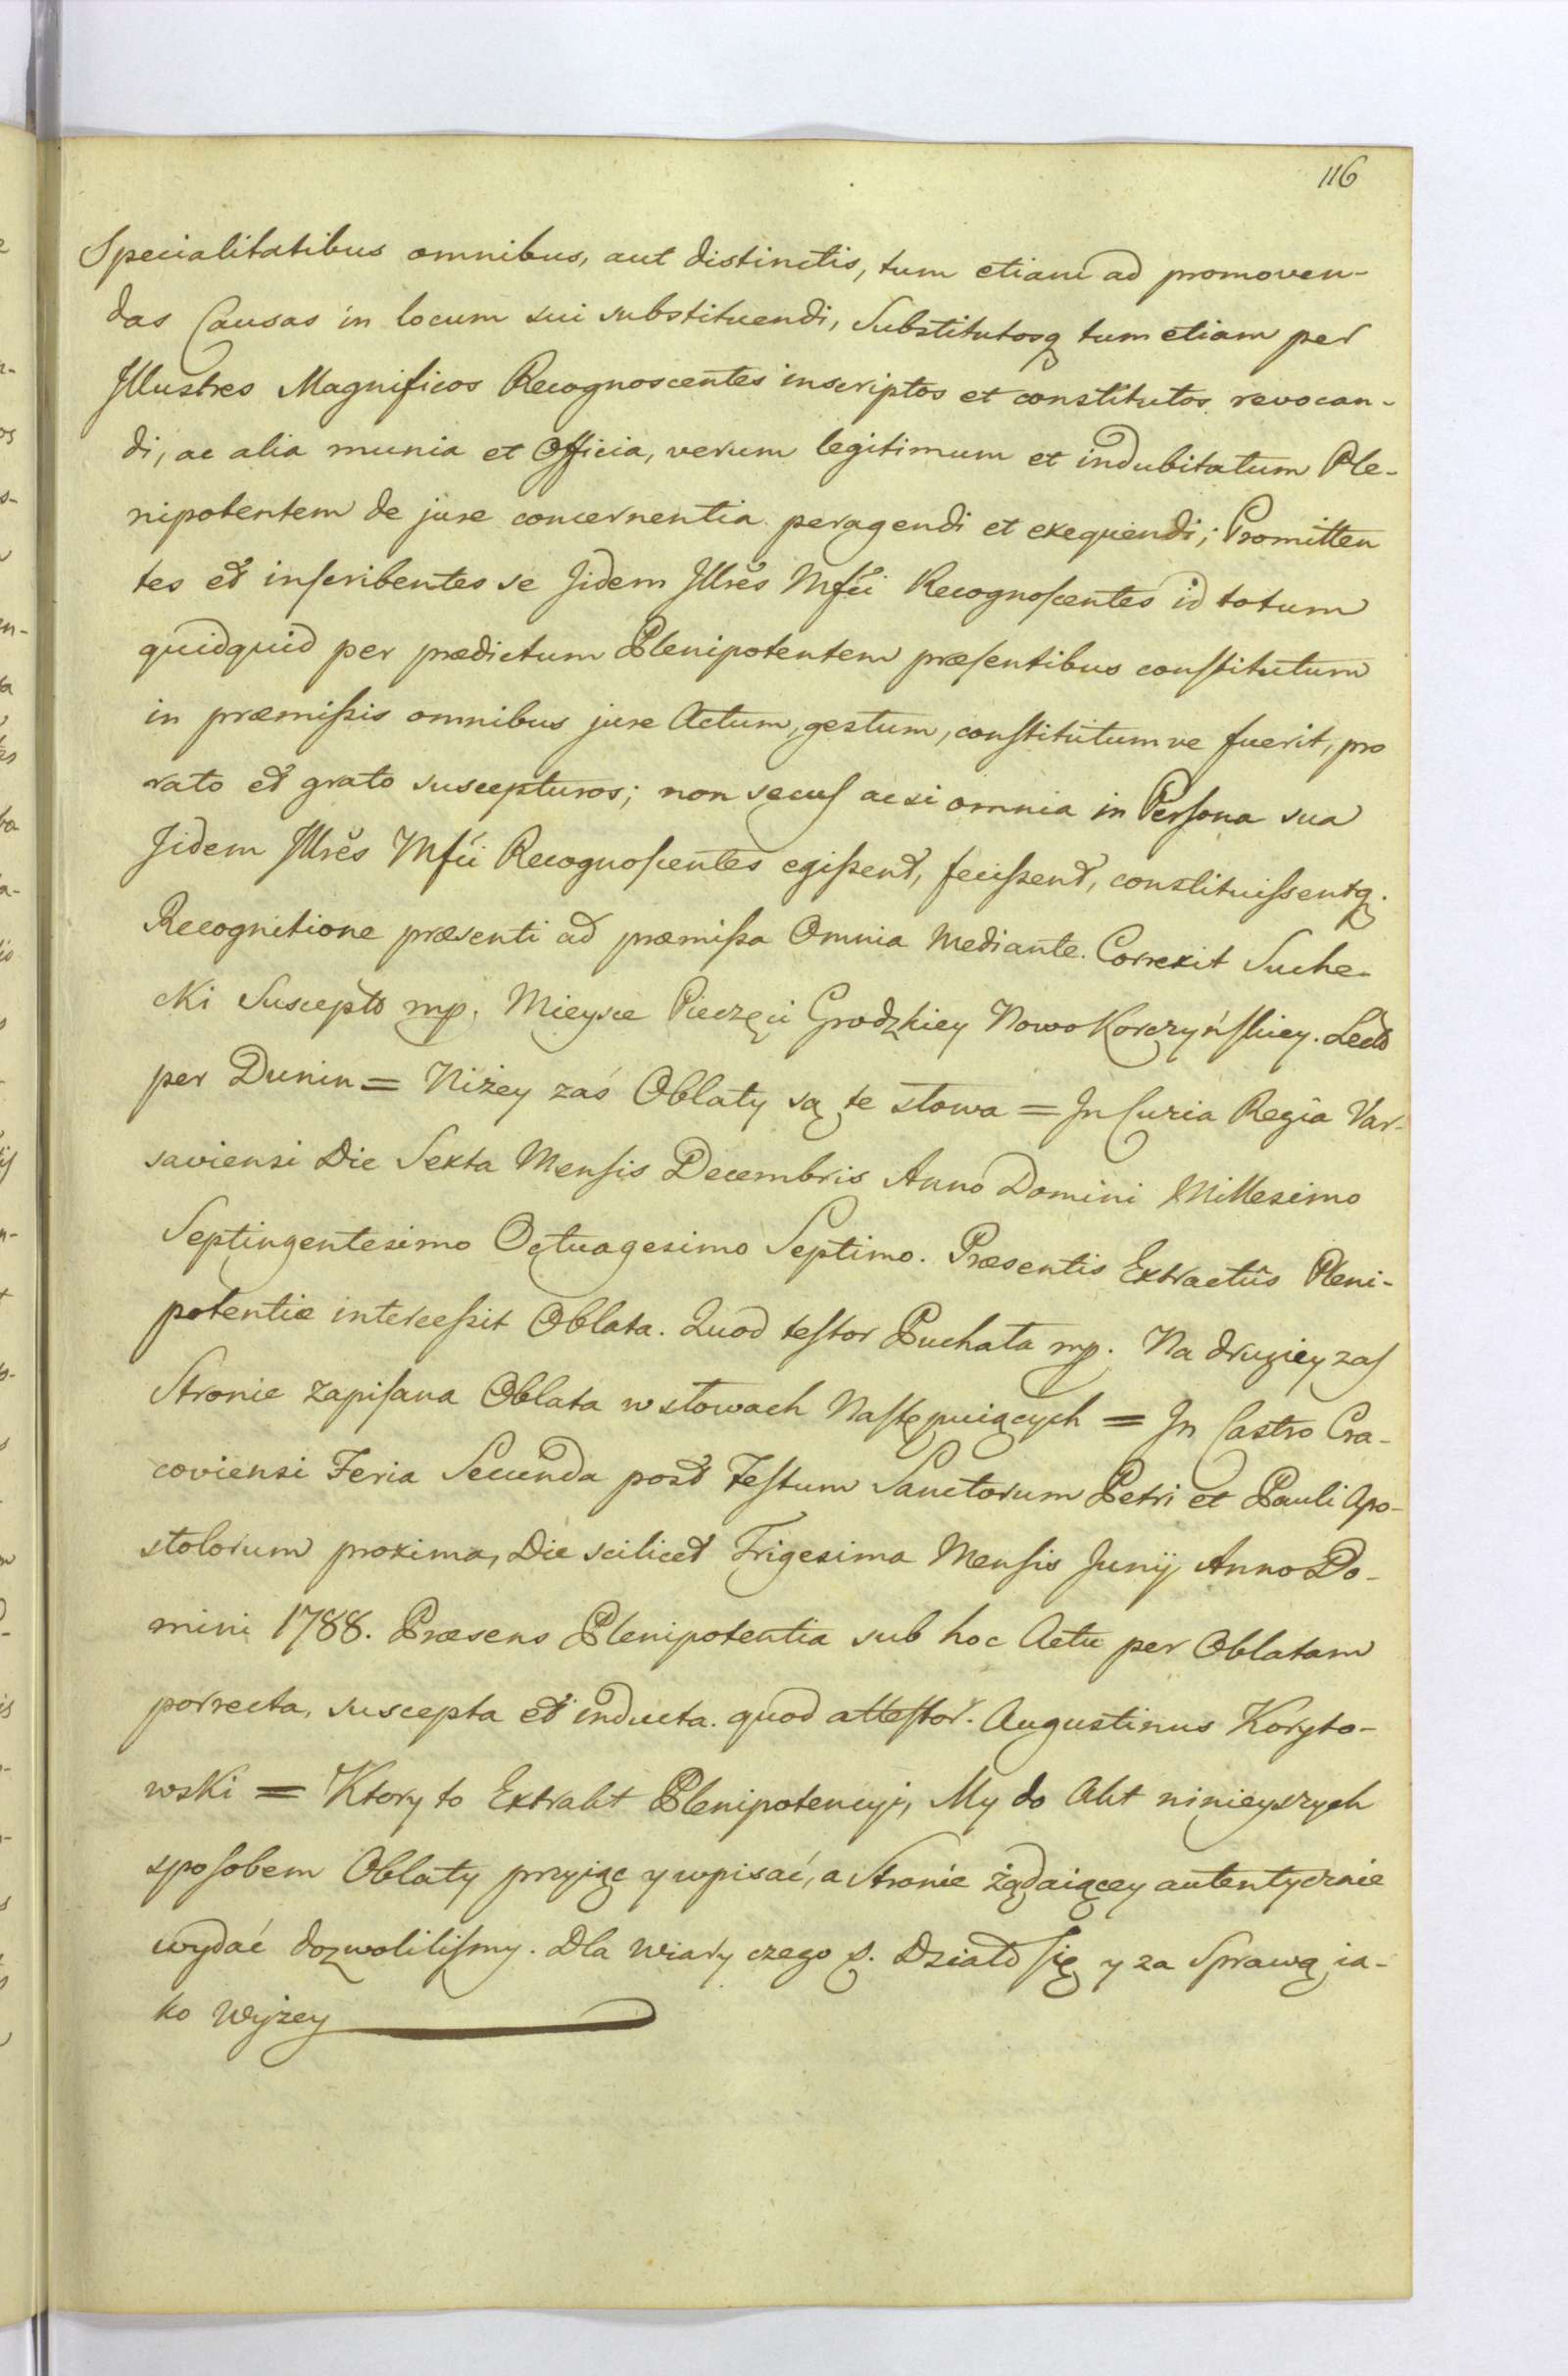 116
Specialitatibus omnibus, aut distinctis, tum etiam ad promoven-
das Causas in locum sui substituendi, Substitutosq tum etiam per
Illustres Magnificos Recognoscentes inscriptos et constitutos revocan-
di, ac alia munia et Officia, verum legitimum et indubitatum Ple-
nipotentem de jure concernentia peragendi et exequendi; Promitten
tes et inscribentes se Iidem Illrẽs Mfci Recognoscentes id totum
quidquid per prædictum Plenipotentem præsentibus constitutum
in præmissis omnibus jure Actum, gestum, constitutumve fuerit, pro
rato et grato suscepturos; non secus acsi omnia in Persona sua
Iidem Illrẽs Mfci Recognoscentes egissent, fecissent, constituissentq.
Recognitione præsenti ad præmissa Omnia Mediante. Correxit Suche-
cki Susceptt mp. Mieysce Pieczęci Grodzkiey Nowo Korczyńskiey. Lectt
per Dunin = Niżey zaś Oblaty są te słowa = In Curia Regia Var-
saviensi Die Sexta Mensis Decembris Anno Domini Millesimo
Septingentesimo Octuagesimo Septimo. Præsentis Extractûs Pleni-
potentiæ intercessit Oblata. Quod testor Puchała mp. Na drugiey zas
Stronie zapisana Oblata w słowach Następuiących = In Castro Cra-
coviensi Feria Secunda post Festum Sanctorum Petri et Pauli Apo-
stolorum proxima, Die scilicet Trigesima Mensis Junij Anno Do-
mini 1788. Præsens Plenipotentia sub hoc Actu per Oblatam
porrecta, suscepta et inducta. quod attestor. Augustinus Koryto-
wski = Ktory to Extrakt Plenipotencyi, My do Akt ninieyszych
sposobem Oblaty przyiąc y wpisać, a Stronie żądaiącey autentycznie
wydać dozwolilismy. Dla wiary czego Działo się y za Sprawą ia-
ko wyżey